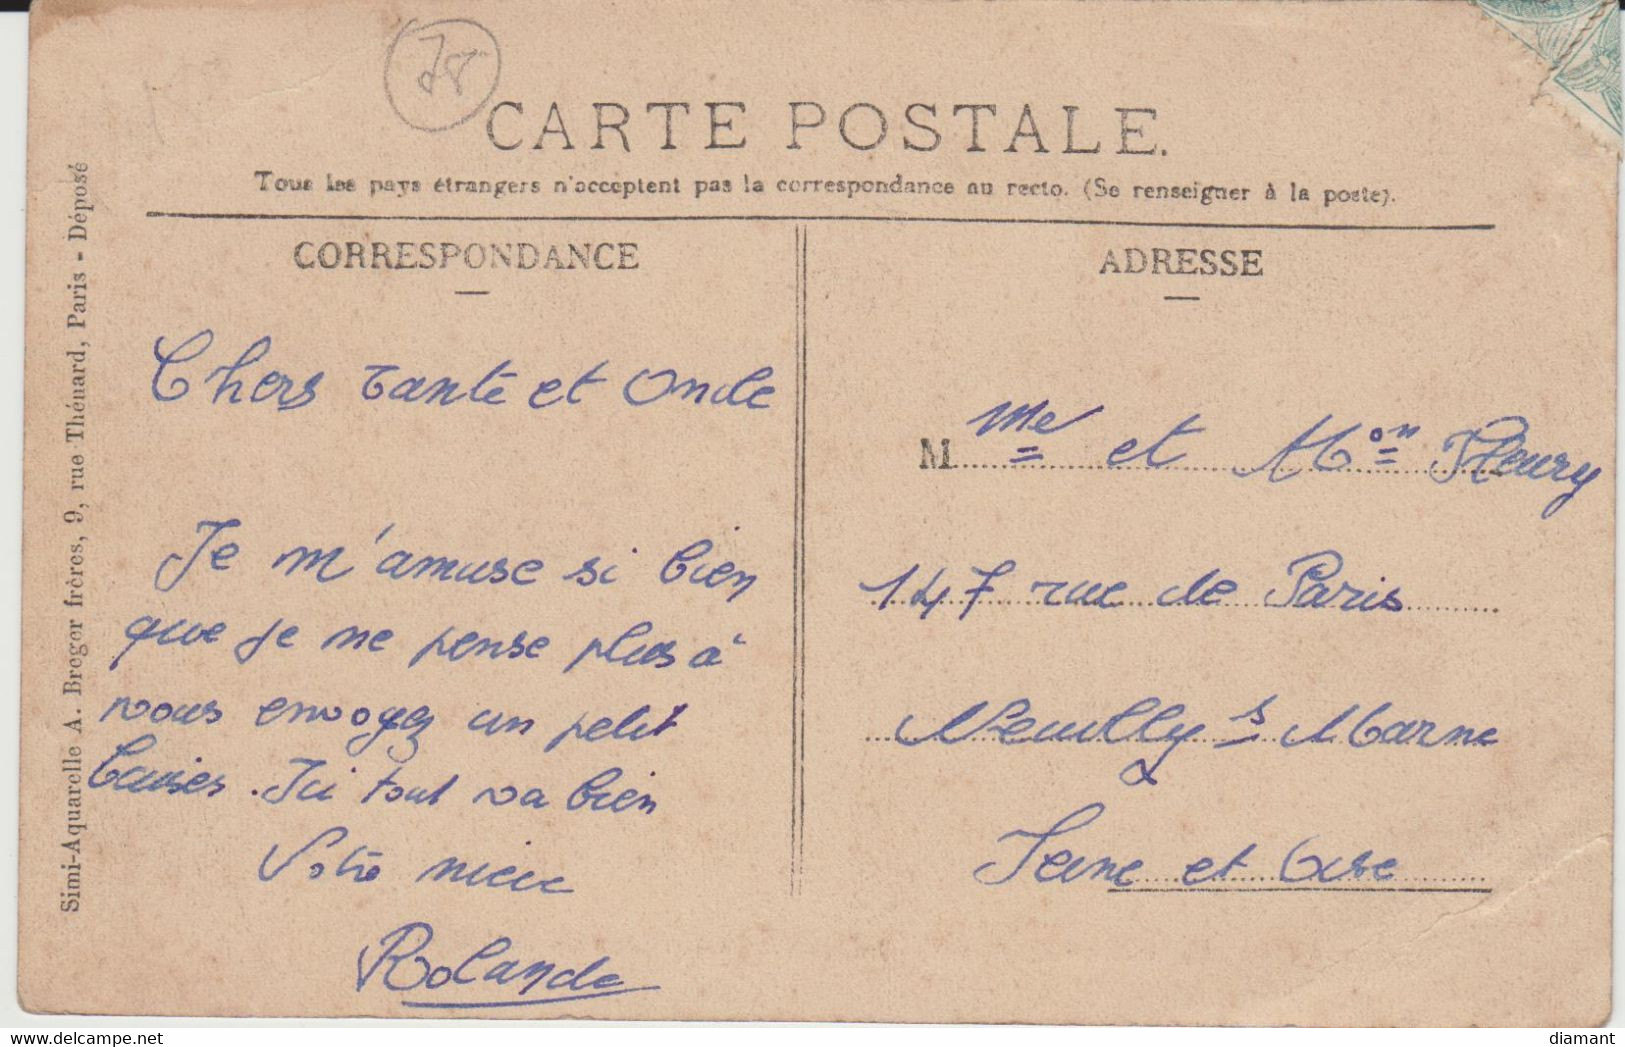 78
CARTE POSTALE.
Tous les pays étrangers n'acceptent pas la correspondance au recto. (Se renseigner à la poste).
CORRESPONDANCE
Chers tante et Oncle
Je m'amuse si bien
que je ne pense plus à
vous envoyez un petit
baiser. Ici tout va bien
Votre niece
Rolande
ADRESSE
M me et Mon Fleury
147 rue de Paris
Neuilly s Marne
Seine et Oise
Simi-Aquarelle A. Breger frères, 9, rue Thénard, Paris - Déposé
https://www.delcampe.net
diamant